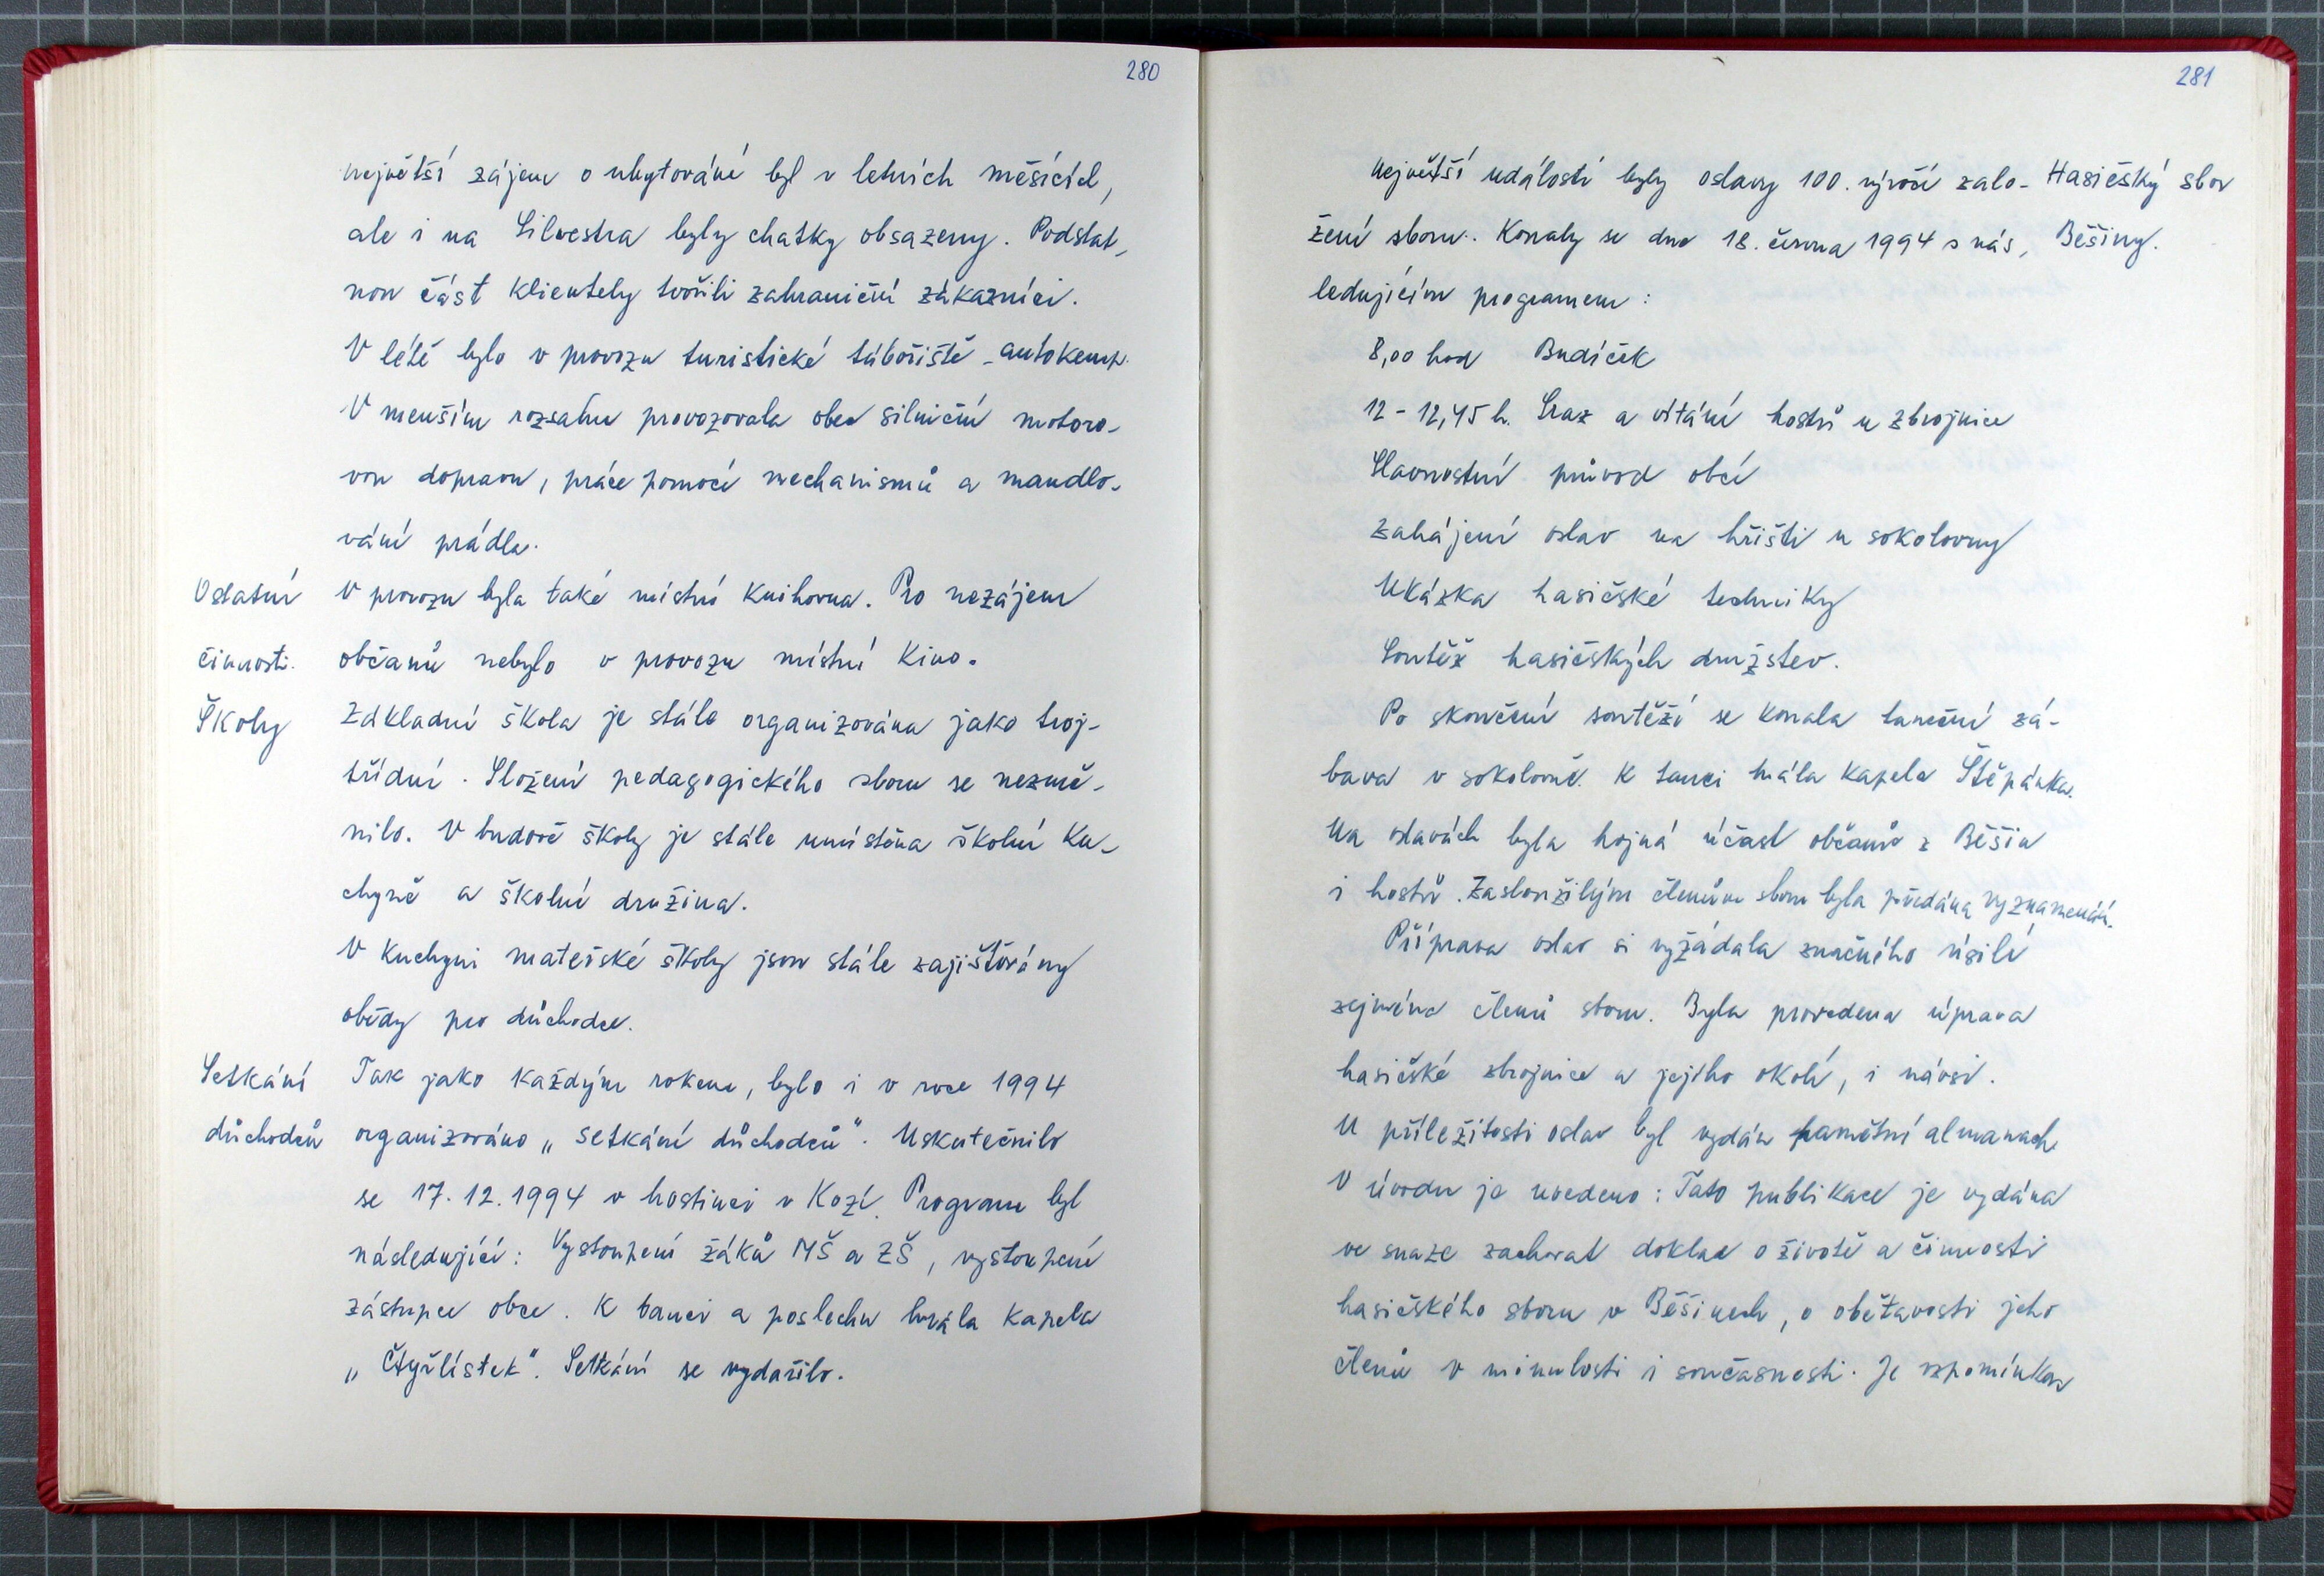 280
největší zájem o ubytování byl v letních měsících,
ale i na Silvestra byly chatky obsazeny. Podstat-
nou část klientely tvořili zahraniční zákazníci.
V létě bylo v provozu turistické tábořiště - autokemp.
V menším rozsahu provozovala obec silniční motoro-
vou dopravu, práce pomocí mechanismů a mandlo-
vání prádla.
Ostatní
činnosti.
V provozu byla také místní knihovna. Pro nezájem
občanů nebylo v provozu místní kino.
Školy
Základní škola je stále organizována jako troj-
třídní. Složení pedagogického sboru se nezmě-
nilo. V budově školy je stále umístěna školní ku-
chyně a školní družina.
V kuchyni mateřské školy jsou stále zajišťovány
obědy pro důchodce.
Setkání
důchodců
Tak jako každým rokem, bylo i v roce 1994
organizováno „setkání důchodců". Uskutečnilo
se 17.12.1994 v hostinci v Kozí. Program byl
následující: Vystoupení žáků MŠ a ZŠ, vystoupení
zástupce obce. K tanci a poslechu hrála kapela
„Čtyřlístek". Setkání se vydařilo.
281
Největší událostí byly oslavy 100. výročí zalo-
žení sboru. Konaly se dne 18. června 1994 s nás-
ledujícím programem:
Hasičský sbor
Běšiny.
8,00 hod Budíček
12 - 12,45 h. Sraz a vítání hostů u zbrojnice
Slavnostní průvod obcí
Zahájení oslav na hřišti u sokolovny
Ukázka hasičské techniky
Soutěž hasičských družstev.
Po skončení soutěží se konala taneční zá-
bava v sokolovně. K tanci hrála kapela Štěpánka.
Na oslavách byla hojná účast občanů z Běšin
i hostů. Zasloužilým členům sboru byla předána vyznamenání.
Příprava oslav si vyžádala značného úsilí
zejména členů sboru. Byla provedena úprava
hasičské zbrojnice a jejího okolí, i návsi.
U příležitosti oslav byl vydán pamětní almanach
V úvodu je uvedeno: Tato publikace je vydána
ve snaze zachovat doklad o životě a činnosti
hasičského sboru v Běšinech, o obětavosti jeho
členů v minulosti i současnosti. Je vzpomínkou